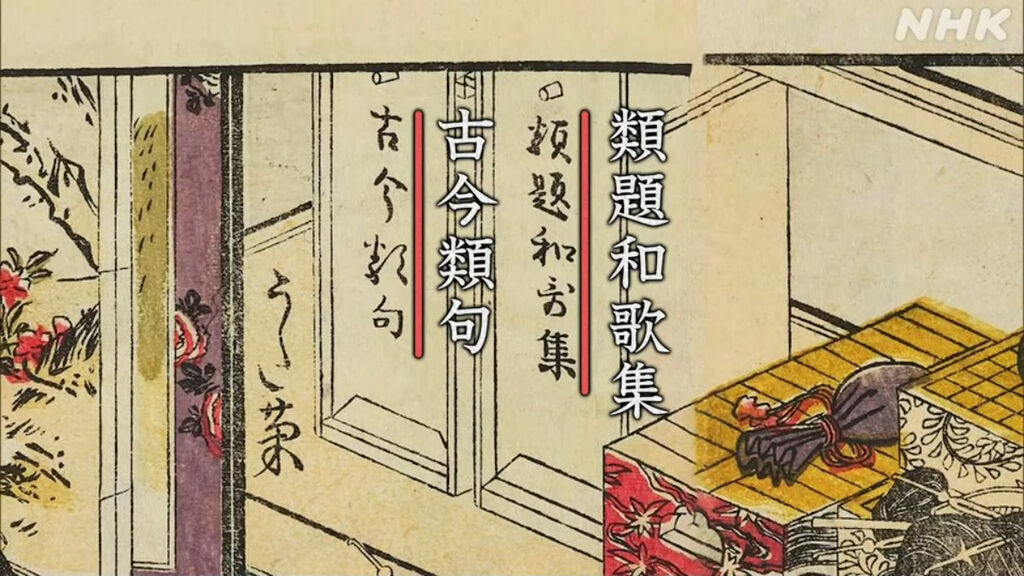 NHK
類題和歌集
類題和哥集
古今類句
古今類句